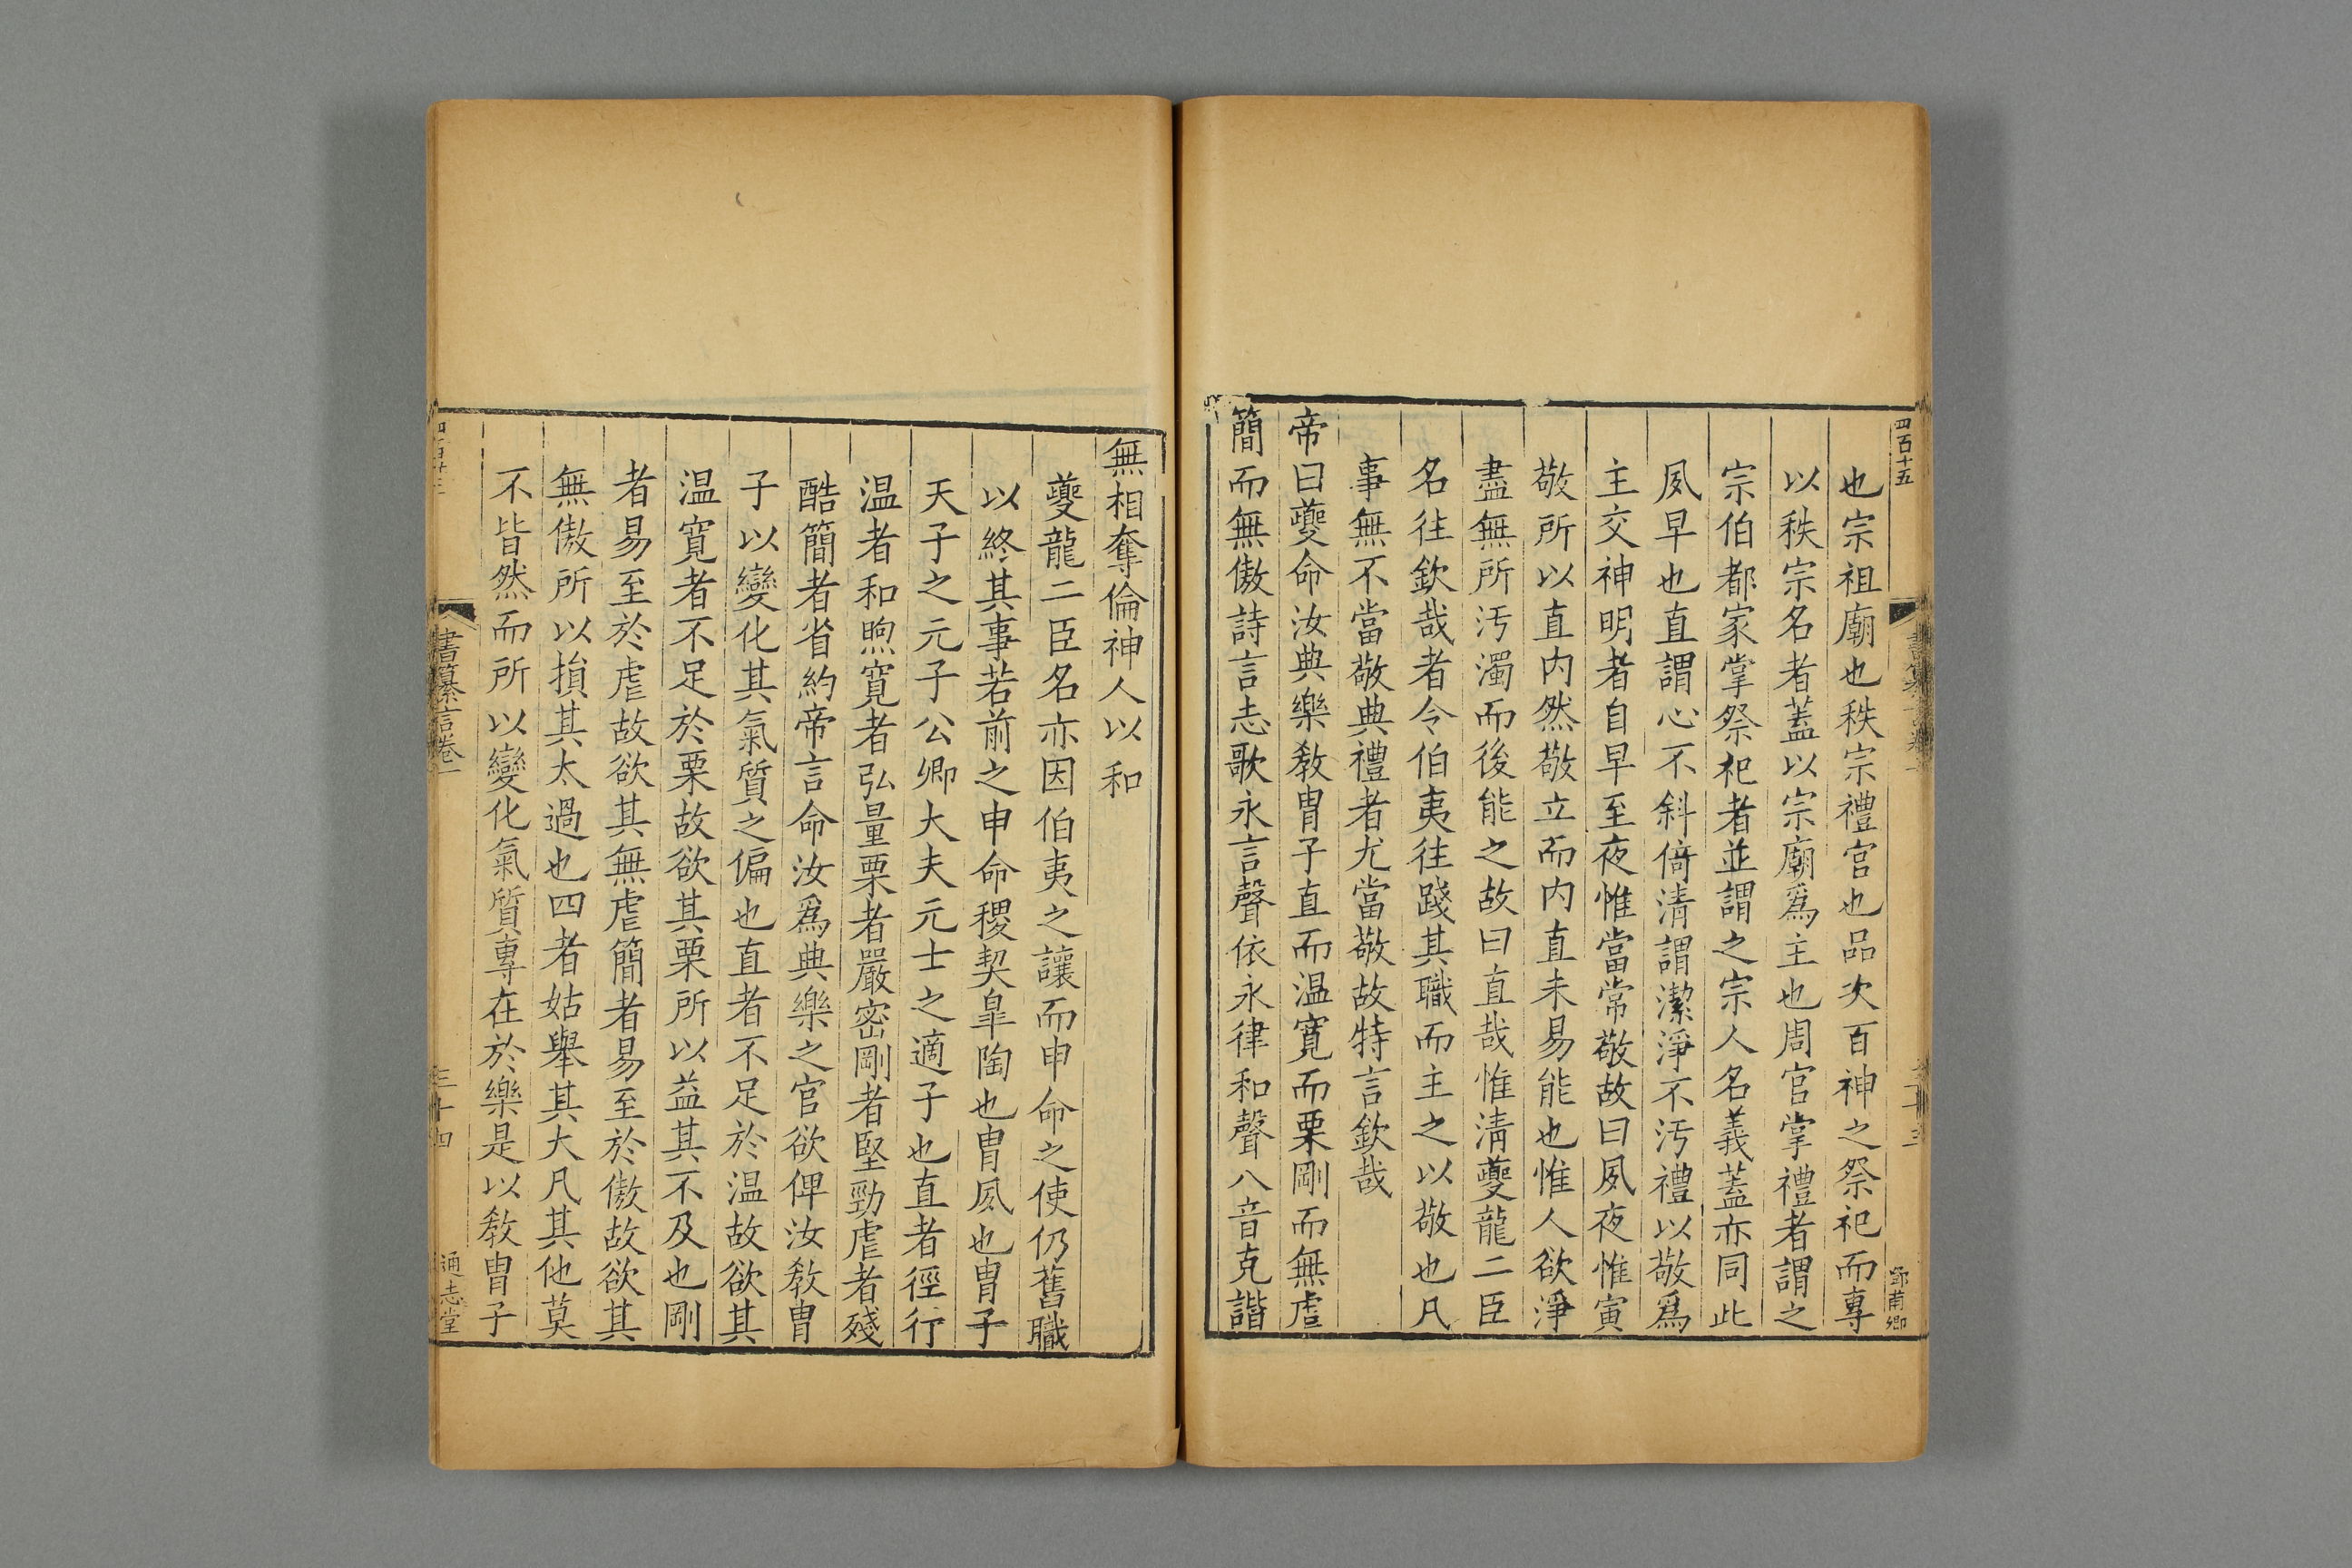 四百十五
也宗祖廟也秩宗禮官也品次百神之祭祀而專
以秩宗名者蓋以宗廟爲主也周官掌禮者謂之
宗伯都家掌祭祀者並謂之宗人名義蓋亦同此
夙早也直謂心不斜倚清謂潔淨不汚禮以敬爲
主交神明者自早至夜惟當常敬故曰夙夜惟寅
敬所以直内然敬立而内直未易能也惟人欲淨
盡無所汚濁而後能之故曰直哉惟清夔龍二臣
名往欽哉者令伯夷往踐其職而主之以敬也凡
事無不當敬典禮者尤當敬故特言欽哉
帝曰夔命汝典樂教胄子直而温寛而栗剛而無虐
簡而無傲詩言志歌永言聲依永律和聲八音克諧
鄧甫卿
無相奪倫神人以和
夔龍二臣名亦因伯夷之讓而申命之使仍舊職
以終其事若前之申命稷契臯陶也胄夙也胄子
天子之元子公卿大夫元士之適子也直者徑行
温者和煦寛者弘量栗者嚴密剛者堅勁虐者殘
酷簡者省約帝言命汝爲典樂之官欲俾汝教胄
子以變化其氣質之偏也直者不足於温故欲其
温寛者不足於栗故欲其栗所以益其不及也剛
者易至於虐故欲其無虐簡者易至於傲故欲其
無傲所以損其太過也四者姑舉其大凡其他莫
不皆然而所以變化氣質專在於樂是以教胄子
書纂言卷一
三十四
通志堂